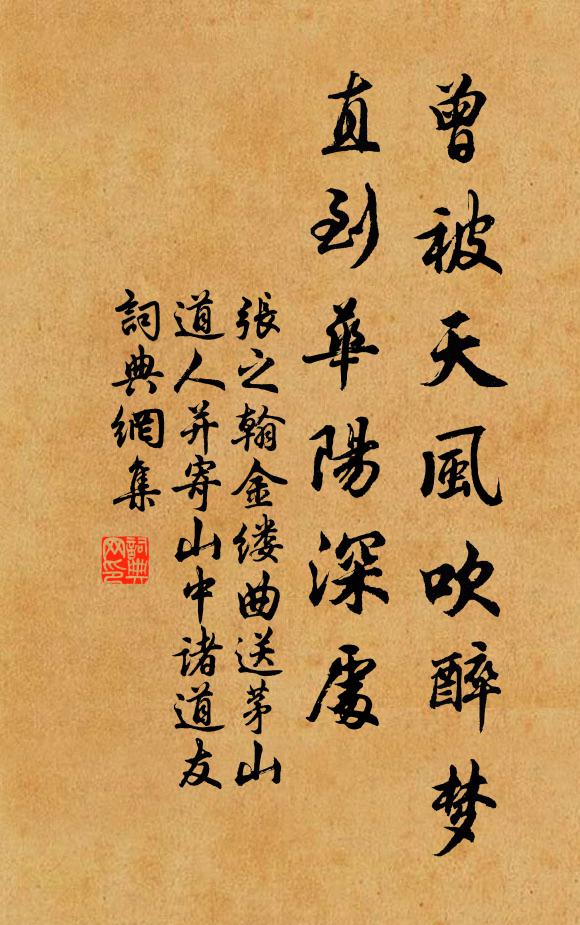 曾被天風吹醉梦
直到華陽深處
張之翰金缕曲送茅山
道人并寄山中诸道友
詞典網集
詞典
网印